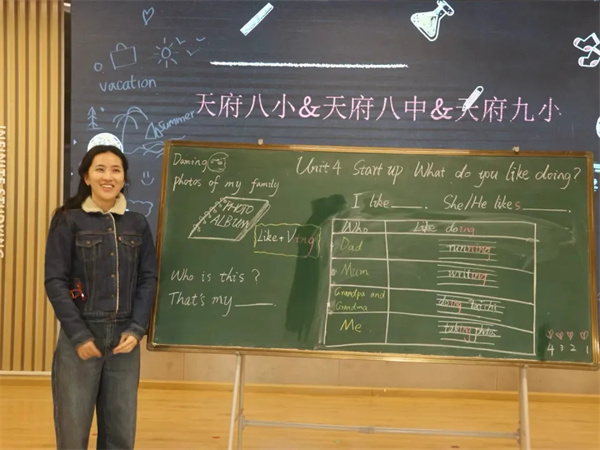 vacation
Summer
天府八小&天府八中&天府九小
Daming
photos of my family
PHOTO
ALBUM
Like + Ving
Who is this?
That's my ____.
Unit 4 Start up What do you like doing?
I like ____. She/He likes ____.
Who Like doing
Dad running
Mum writing
Grandpa and
Grandma doing Tai chi
Me
4 3 2 1